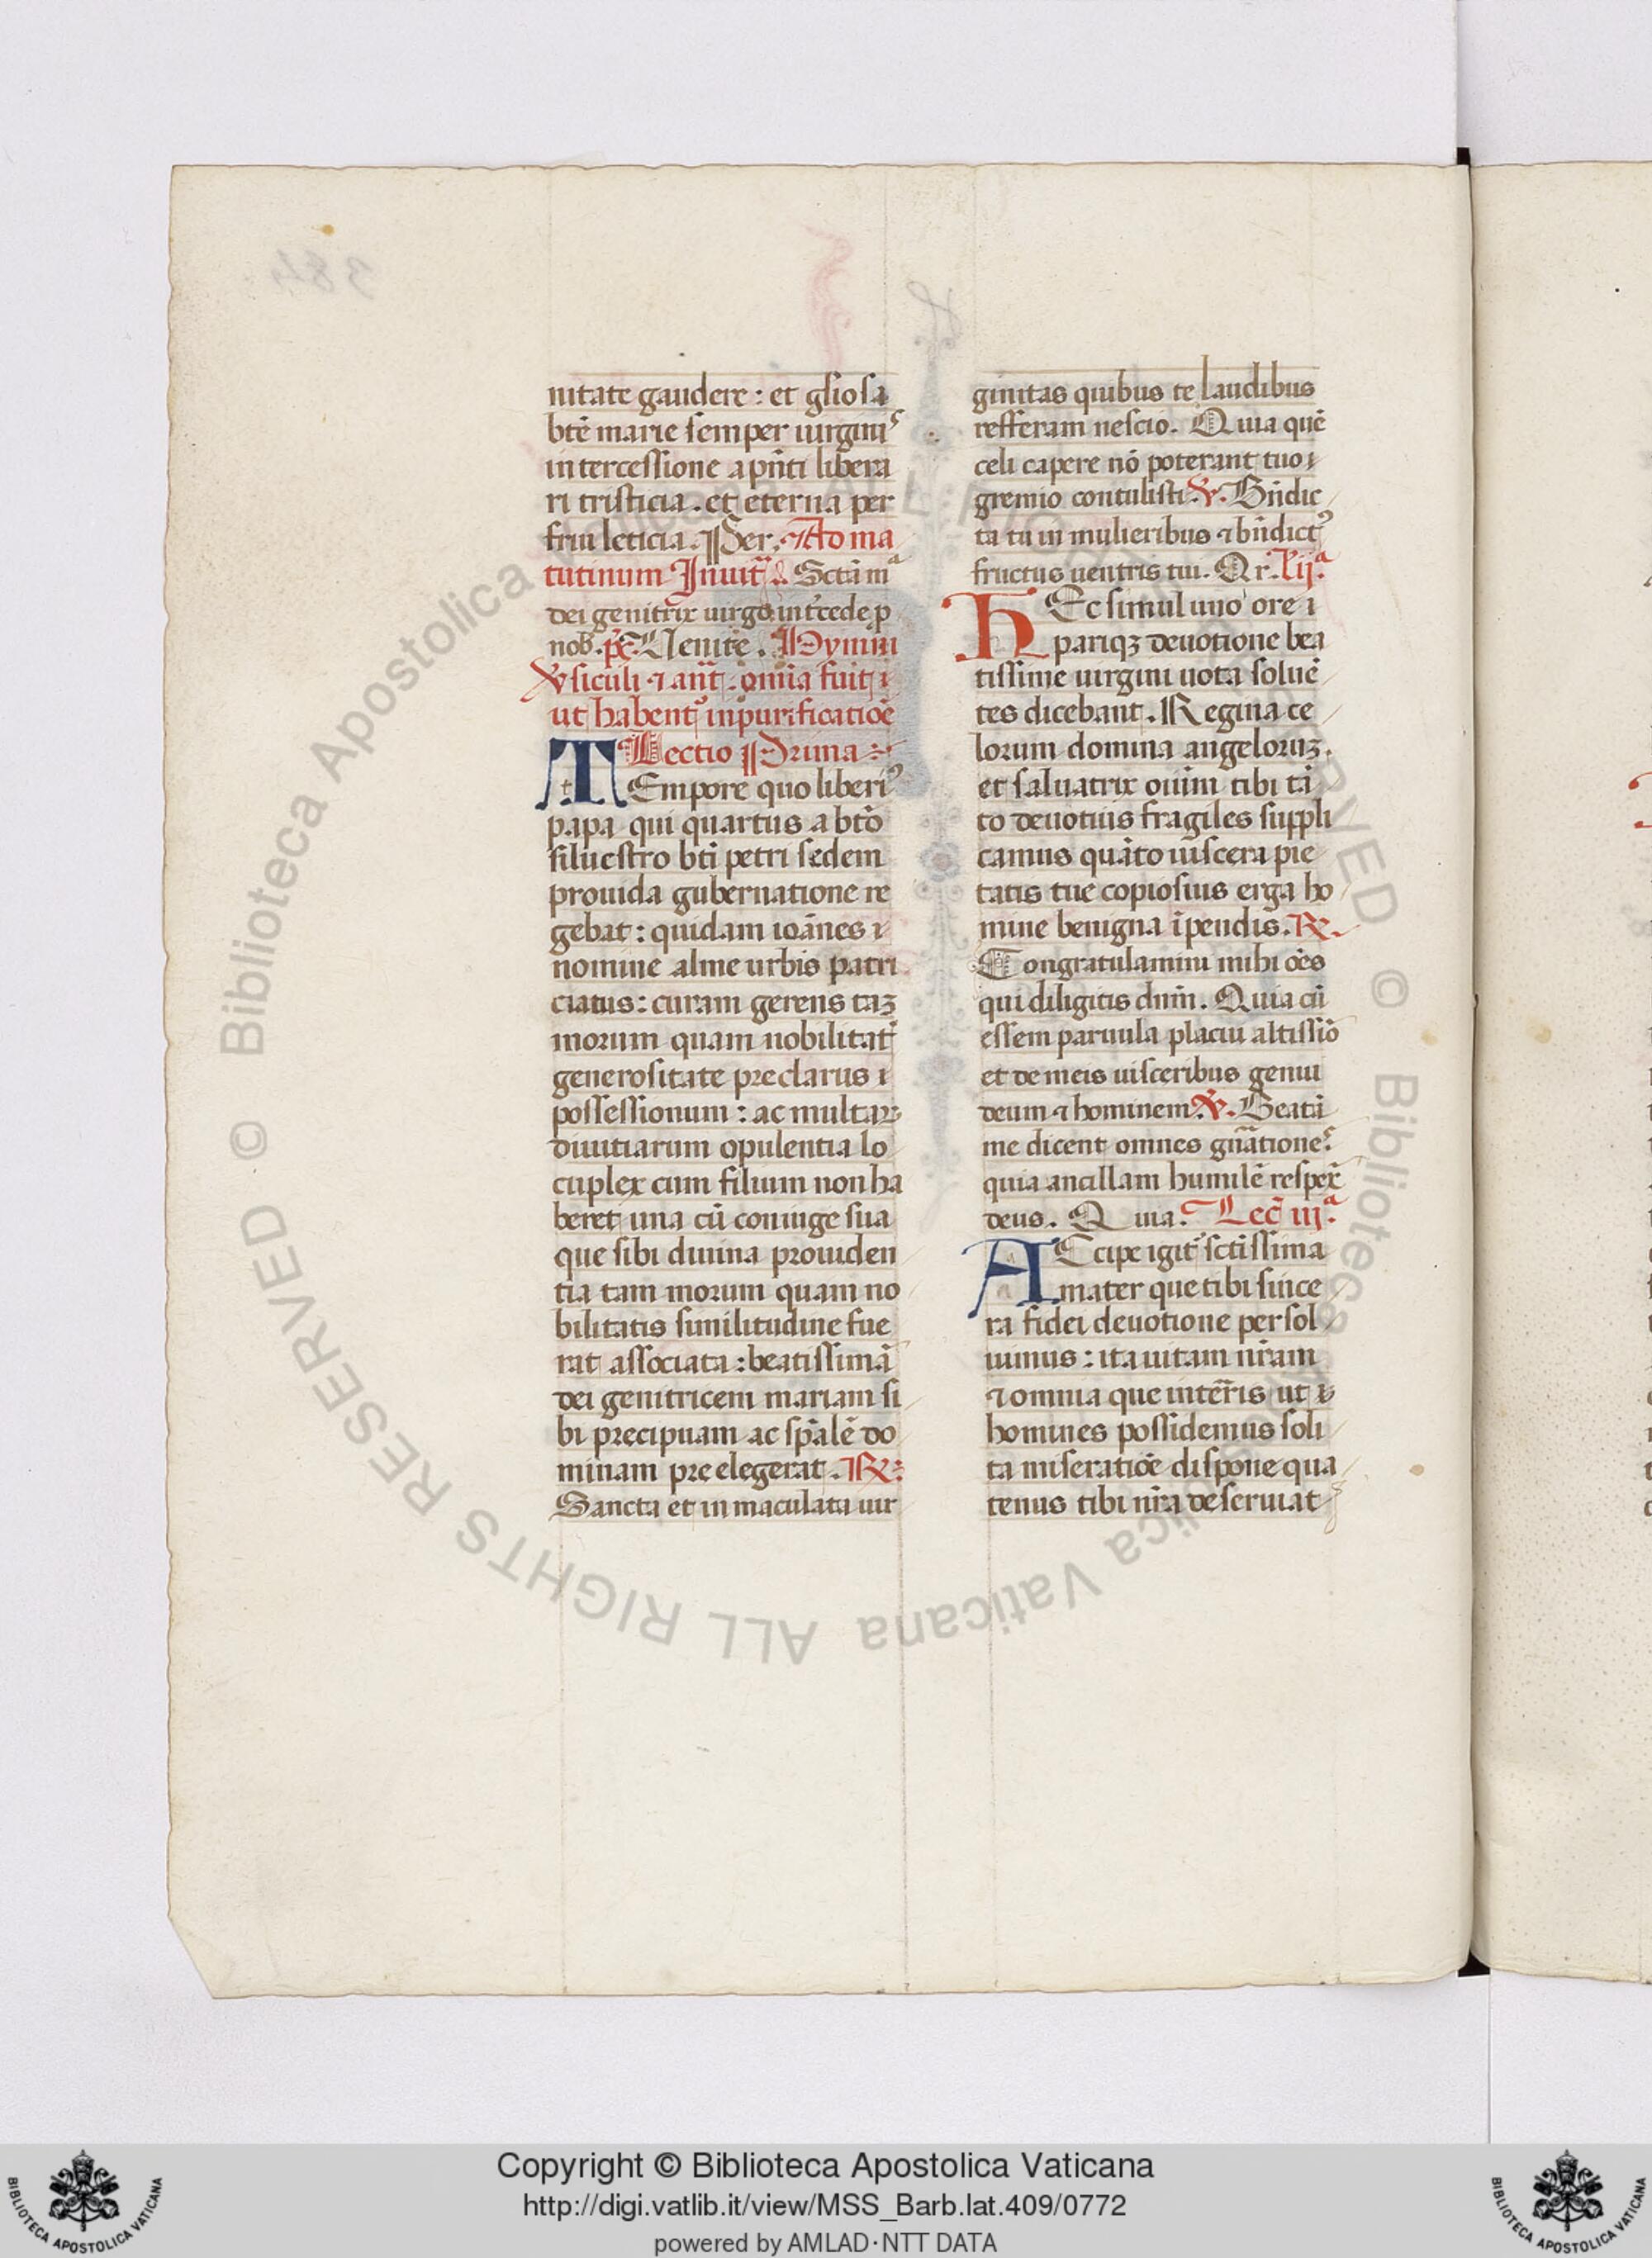 384
nitate gaudere : et gliosa
btē marie semper uirginis
intercessione a pn̄ti libera
ri tristicia . et eterna per
frui leticia . Per . Ad ma
tutinum Inuit Sctā m
dei genitrix uirgo int̄cede p
nob . ps . Uenite . Hymni
Vsiculi ⁊ añt . om̄ia fiūt ;
ut habent᷒ in purificatiōe
Lectio Prima
TEmpore quo liberi᷒
papa qui quartus a btō
siluestro bti petri sedem
prouida gubernatione re
gebat : quidam ioānes
nomine alme urbis patri
ciatus : curam gerens taꝫ
morum quam nobilitat̄
generositate preclarus
possessionum : ac multaꝝ
diuitiarum opulentia lo
cuplex cum filium non ha
beret una cū coniuge sua
que sibi diuina prouiden
tia tam morum quam no
bilitatis similitudine fue
rat associata : beatissimā
dei genitricem mariam si
bi precipuam ac sp̄alē do
minam preelegerat . R
Sancta et in maculata uir
ginitas quibus te laudibus
refferam nescio . Quia quē
celi capere nō poterant tuo
gremio contulisti . V . Bn̄dic
ta tu in mulieribus ⁊ bn̄dict᷒
fructus uentris tui . Qr . L ijª
HEc simul uno ore
pariqꝫ deuotione bea
tissime uirgini uota soluē
tes dicebant . Regina ce
lorum domina angeloruꝫ .
et saluatrix oūm tibi tā
to deuotius fragiles suppli
camus quāto uiscera pie
tatis tue copiosius erga ho
mine benigna īpendis . R .
Congratulamini mihi ōēs
qui diligitis dnm̄ . Quia cū
essem paruula placui altissīo
et de meis uisceribus genui
deum ⁊ hominem . V . Beatā
me dicent omnes gn̄ationes
quia ancillam humilē respex̄
deus . Quia . Lec̄ iijª
ACcipe igit᷒ sctissima
mater que tibi since
ra fidei deuotione persol
uimus : ita uitam nr̄am
⁊ omnia que inter̄is ut
homines possidemus soli
ta miseratiōe dispone qua
tenus tibi nr̄a deseruiat
© Biblioteca Apostolica Vaticana ALL RIGHTS RESERVED © Biblioteca Apostolica Vaticana ALL RIGHTS RESERVED
Copyright © Biblioteca Apostolica Vaticana
http://digi.vatlib.it/view/MSS_Barb.lat.409/0772
powered by AMLAD·NTT DATA
BIBLIOTECA APOSTOLICA VATICANA
BIBLIOTECA APOSTOLICA VATICANA